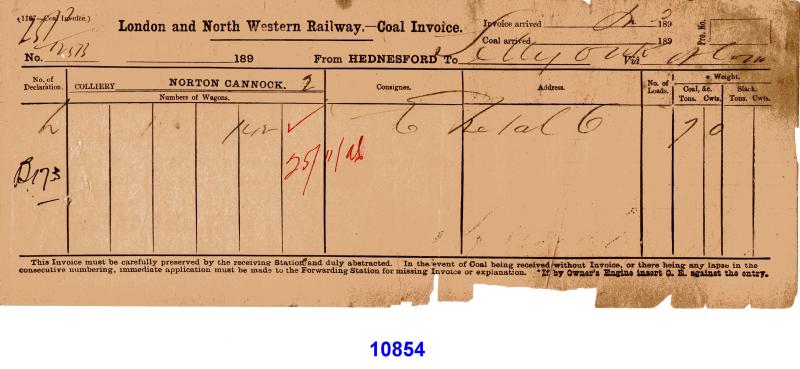 (1197—Coal Invoice.)
London and North Western Railway.—Coal Invoice.
Invoice arrived 189
Coal arrived 189
Pro. No.
No. 189 From HEDNESFORD To Via
No. of Declaration. COLLIERY NORTON CANNOCK. 2 Consignee. Address. No. of Loads. * Weight.
Numbers of Wagons. Coal, &c. Slack.
Tons. Cwts. Tons. Cwts.
142 ✓ 7 0
25/11/98
B173
This Invoice must be carefully preserved by the receiving Station and duly abstracted. In the event of Coal being received without Invoice, or there being any lapse in the
consecutive numbering, immediate application must be made to the Forwarding Station for missing Invoice or explanation. *If by Owner's Engine insert O. E. against the entry.
10854